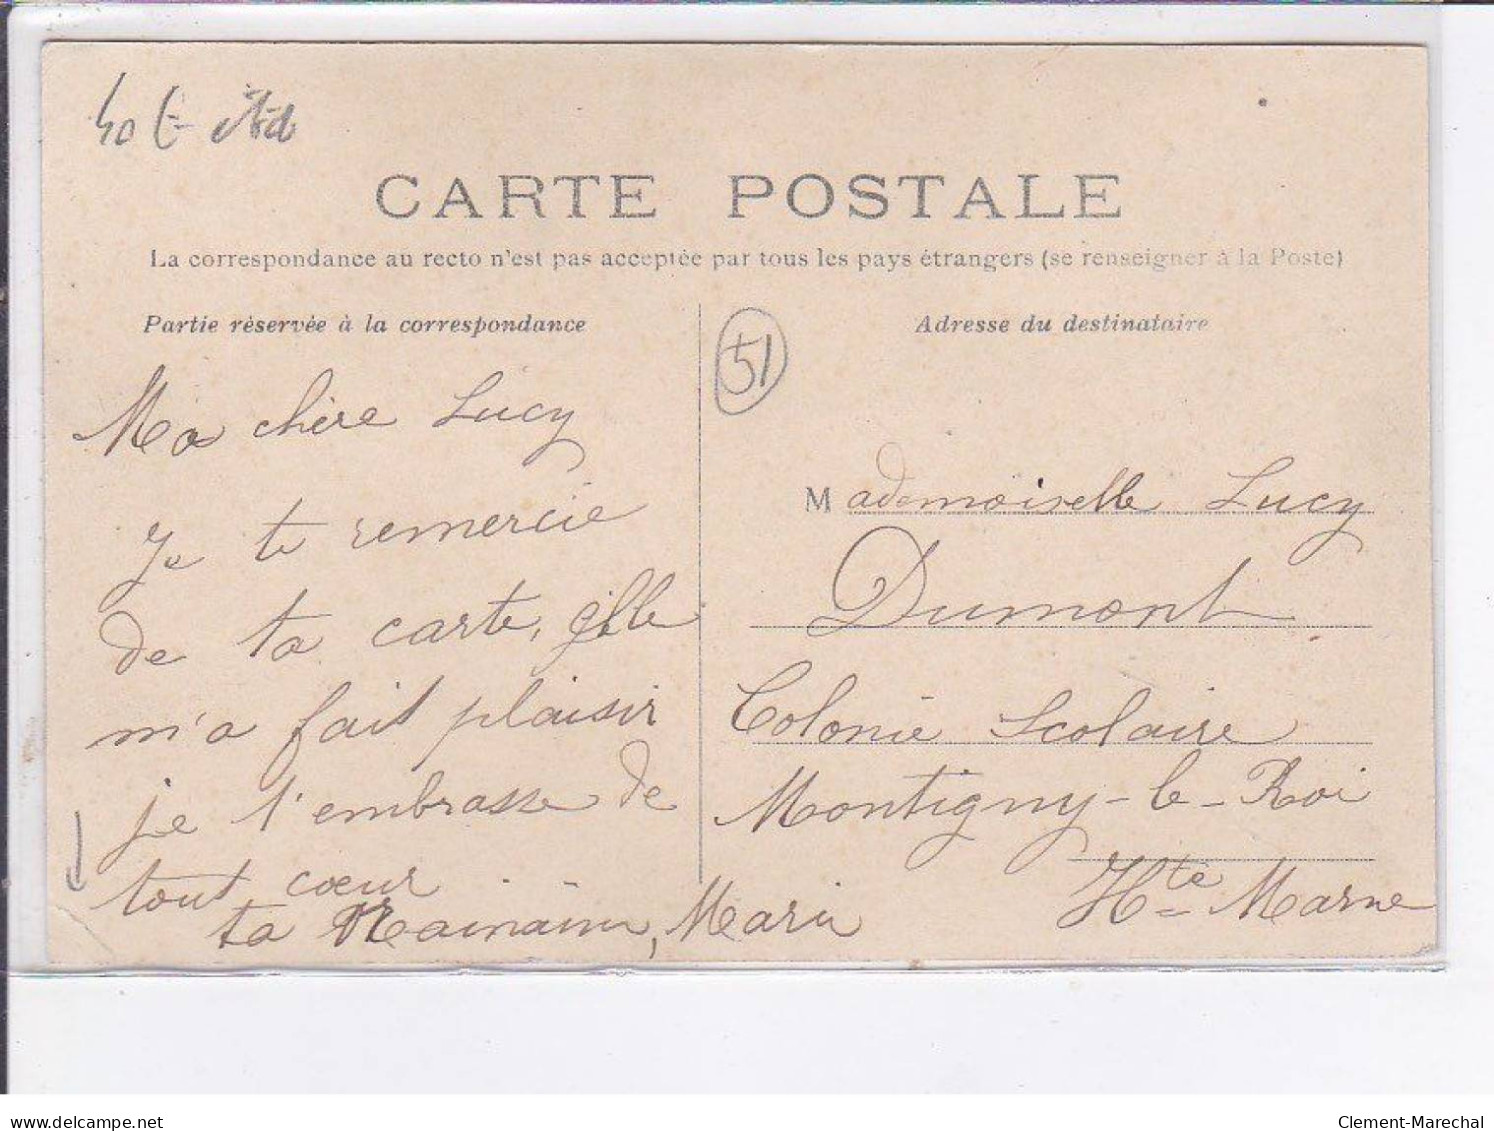 CARTE POSTALE
La correspondance au recto n'est pas acceptée par tous les pays étrangers (se renseigner à la Poste)
Partie réservée à la correspondance
Ma chère Lucy
Je te remercie
de ta carte, elle
m'a fait plaisir
je t'embrasse de
tout cœur
ta Mainain, Marie
51
Adresse du destinataire
Mademoiselle Lucy
Dumont
Colonie Scolaire
Montigny-le-Roi
Hte Marne
delcampe.net
Clement-Marechal